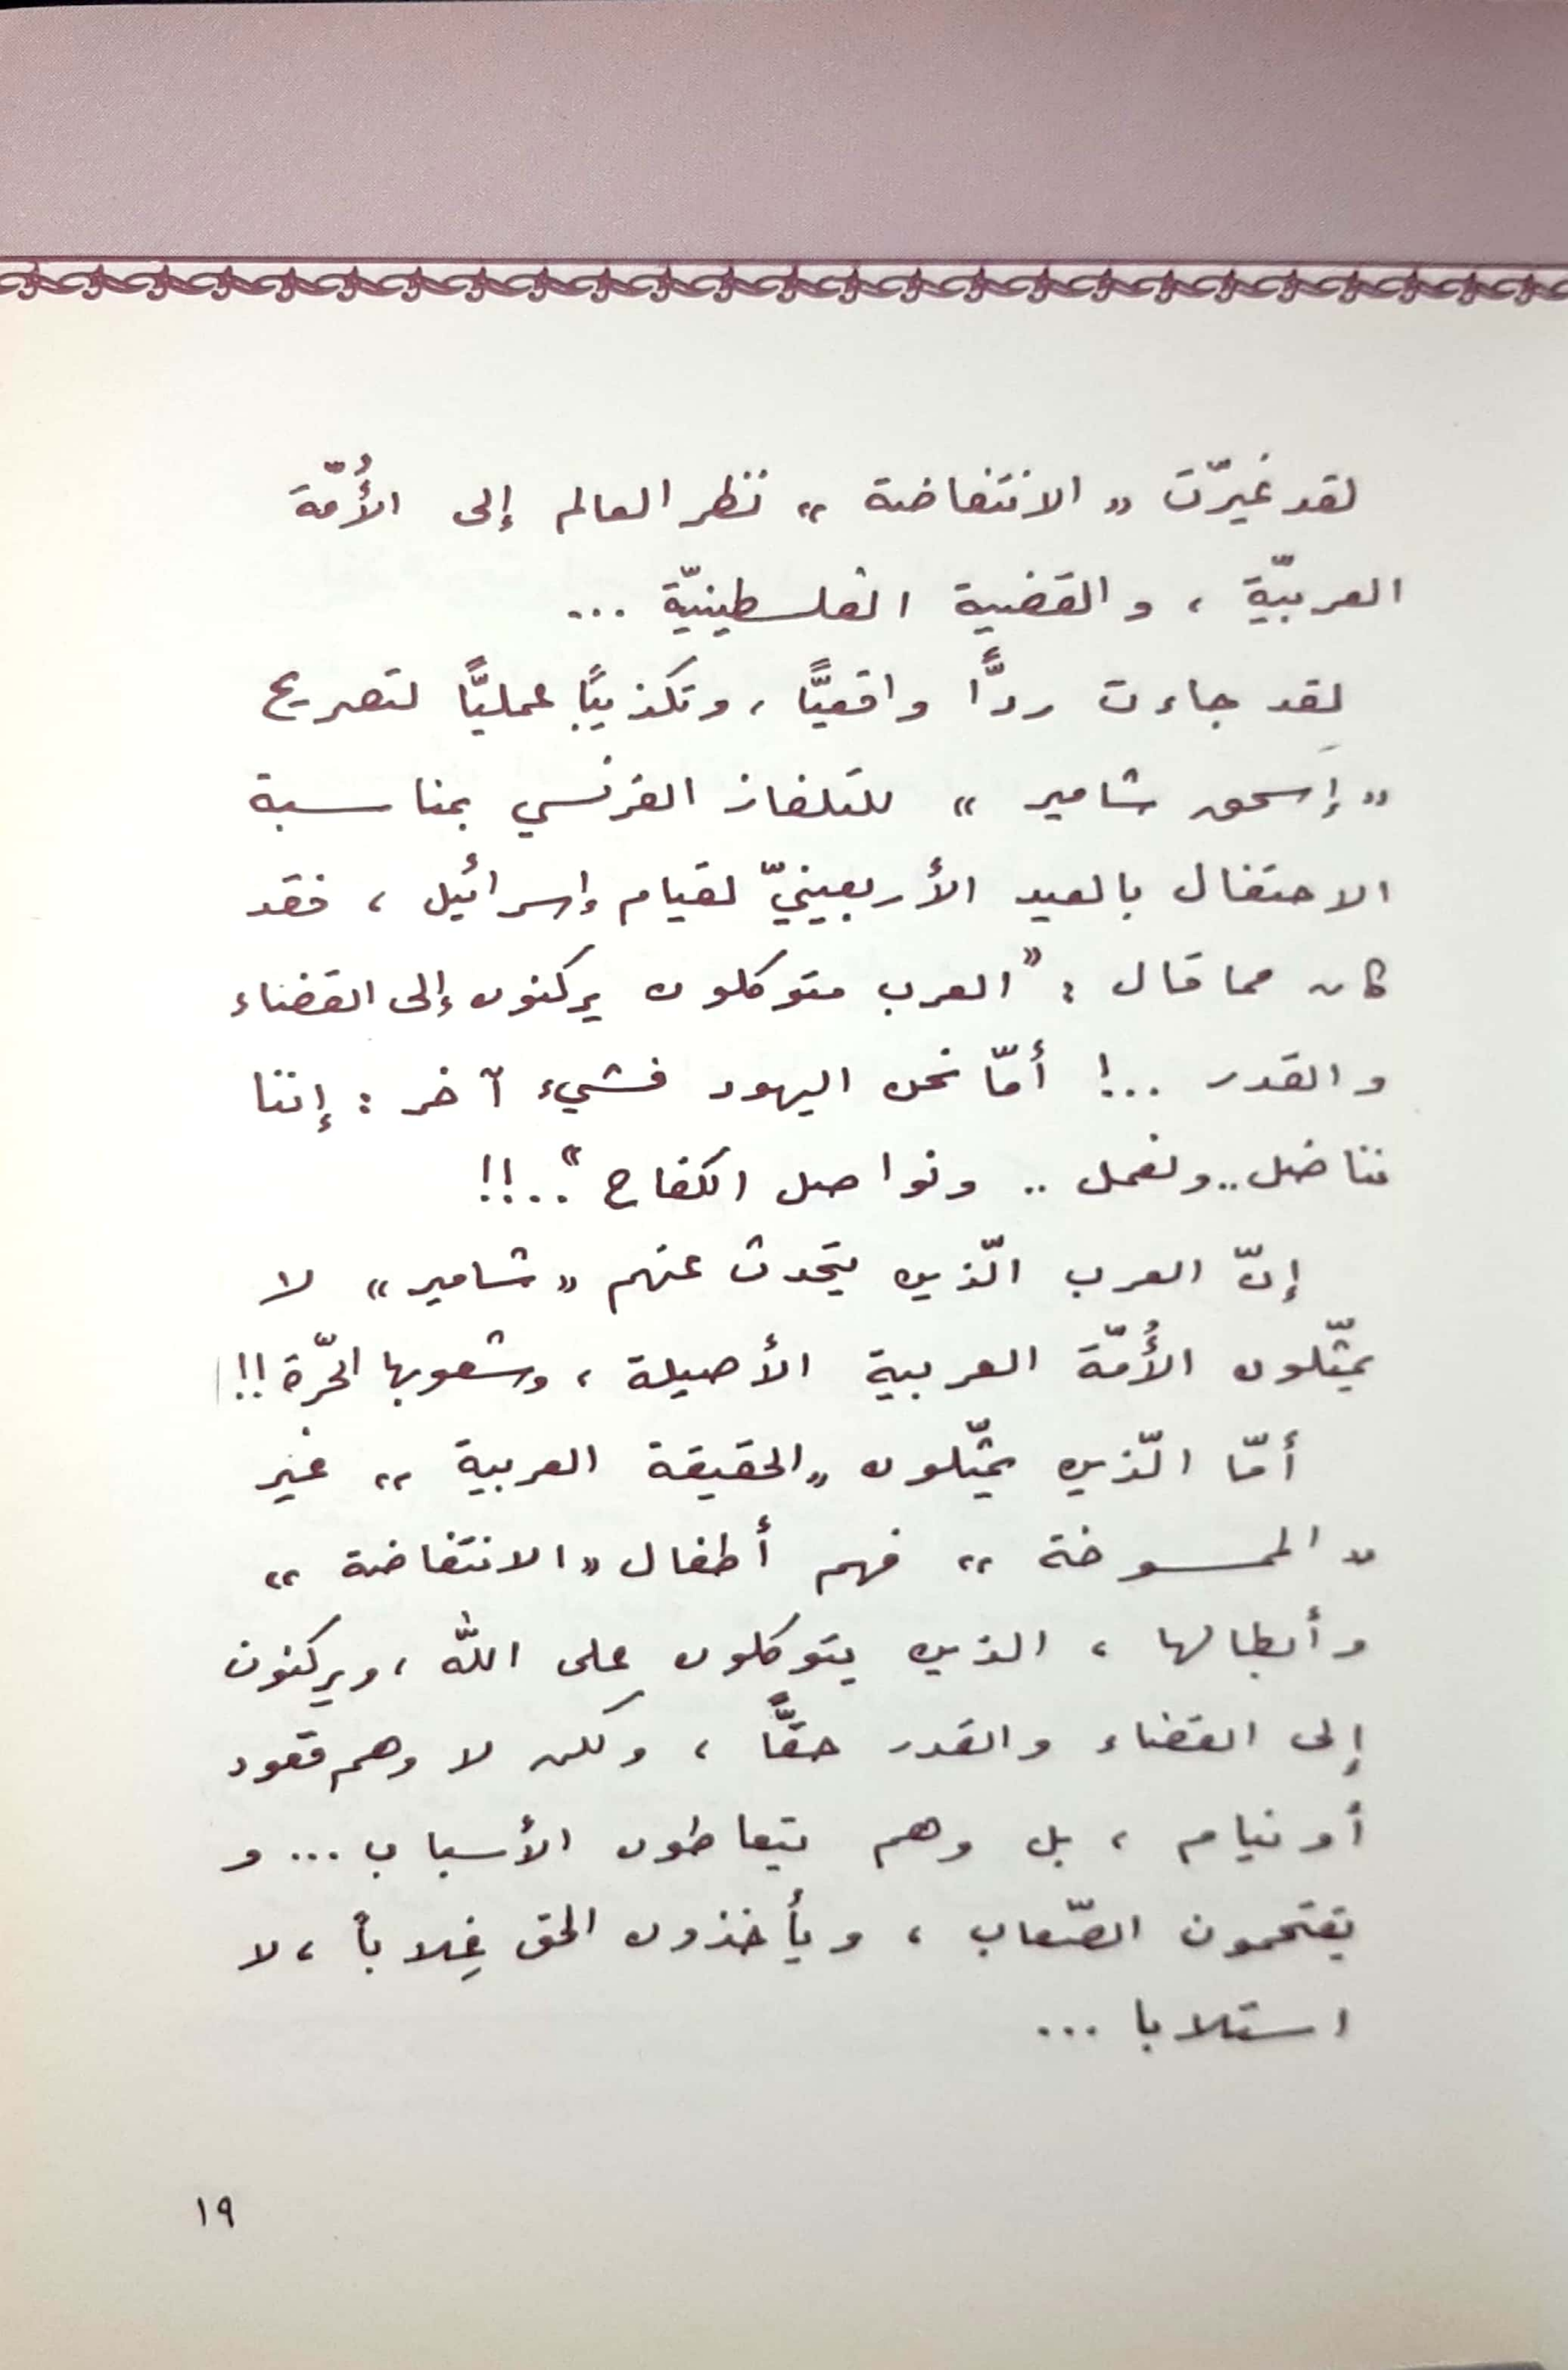 لقد غيّرت «الانتفاضة» نظر العالم إلى الأُمّة
العربيّة ، والقضية الفلسطينيّة ...
لقد جاءت ردًّا واقعيًّا ، وتكذيبًا عمليًّا لتصريح
«إسحق شامير» للتلفاز الفرنسي بمناسبة
الاحتفال بالعيد الأربعينيّ لقيام إسرائيل ، فقد
كان مما قال : "العرب متوكلون يركنون إلى القضاء
والقدر ..! أمّا نحن اليهود فشيء آخر : إننا
نناضل .. ونعمل .. ونواصل الكفاح"..!!
إنّ العرب الّذين يتحدث عنهم «شامير» لا
يمثّلون الأُمّة العربية الأصيلة ، وشعوبها الحرّة !!
أمّا الّذين يمثّلون «الحقيقة العربية» غير
«الممسوخة» فهم أطفال «الانتفاضة»
وأبطالها ، الذين يتوكلون على الله ، ويركنون
إلى القضاء والقدر حقًّا ، ولكن لا وهم قعود
أو نيام ، بل وهم يتعاطون الأسباب ... و
يقتحمون الصّعاب ، ويأخذون الحق غِلاباً ، لا
استلابا ...
١٩